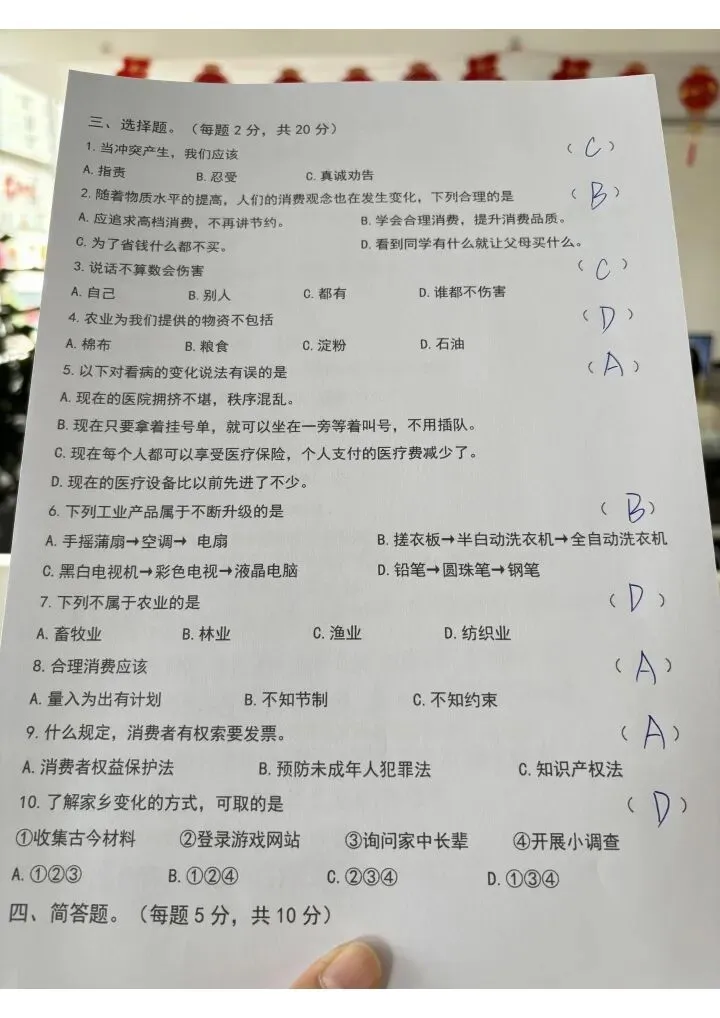 三、选择题。（每题 2 分，共 20 分）
1. 当冲突产生，我们应该 （ C ）
A. 指责 B. 忍受 C. 真诚劝告
2. 随着物质水平的提高，人们的消费观念也在发生变化，下列合理的是 （ B ）
A. 应追求高档消费，不再讲节约。 B. 学会合理消费，提升消费品质。
C. 为了省钱什么都不买。 D. 看到同学有什么就让父母买什么。
3. 说话不算数会伤害 （ C ）
A. 自己 B. 别人 C. 都有 D. 谁都不伤害
4. 农业为我们提供的物资不包括 （ D ）
A. 棉布 B. 粮食 C. 淀粉 D. 石油
5. 以下对看病的变化说法有误的是 （ A ）
A. 现在的医院拥挤不堪，秩序混乱。
B. 现在只要拿着挂号单，就可以坐在一旁等着叫号，不用插队。
C. 现在每个人都可以享受医疗保险，个人支付的医疗费减少了。
D. 现在的医疗设备比以前先进了不少。
6. 下列工业产品属于不断升级的是 （ B ）
A. 手摇蒲扇→空调→ 电扇 B. 搓衣板→半白动洗衣机→全自动洗衣机
C. 黑白电视机→彩色电视→液晶电脑 D. 铅笔→圆珠笔→钢笔
7. 下列不属于农业的是 （ D ）
A. 畜牧业 B. 林业 C. 渔业 D. 纺织业
8. 合理消费应该 （ A ）
A. 量入为出有计划 B. 不知节制 C. 不知约束
9. 什么规定，消费者有权索要发票。 （ A ）
A. 消费者权益保护法 B. 预防未成年人犯罪法 C. 知识产权法
10. 了解家乡变化的方式，可取的是 （ D ）
①收集古今材料 ②登录游戏网站 ③询问家中长辈 ④开展小调查
A. ①②③ B. ①②④ C. ②③④ D. ①③④
四、简答题。（每题 5 分，共 10 分）